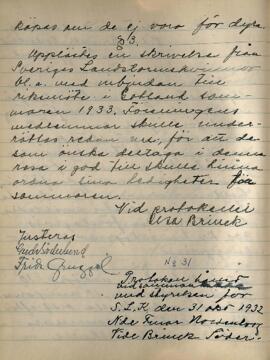 köpas om de ej voro för dyra.
§ 3.
Upplästes en skrivelse från
Sveriges Landstormskvinnor
bl.a. med inbjudan till
riksmöte i Gotland som-
maren 1933. Föreningens
medlemmar skulle under-
rättas redan nu, för att de
som önska deltaga i denna
resa i god tid skulle kunna
ordna sina ledigheter för
sommaren.
Vid protokollet
Elsa Brinck
Justeras
Söderlund
Frida
N:o 31
Protokoll
med styrelsen för
S.L.K. den 31 okt 1932
Nde
Brinck